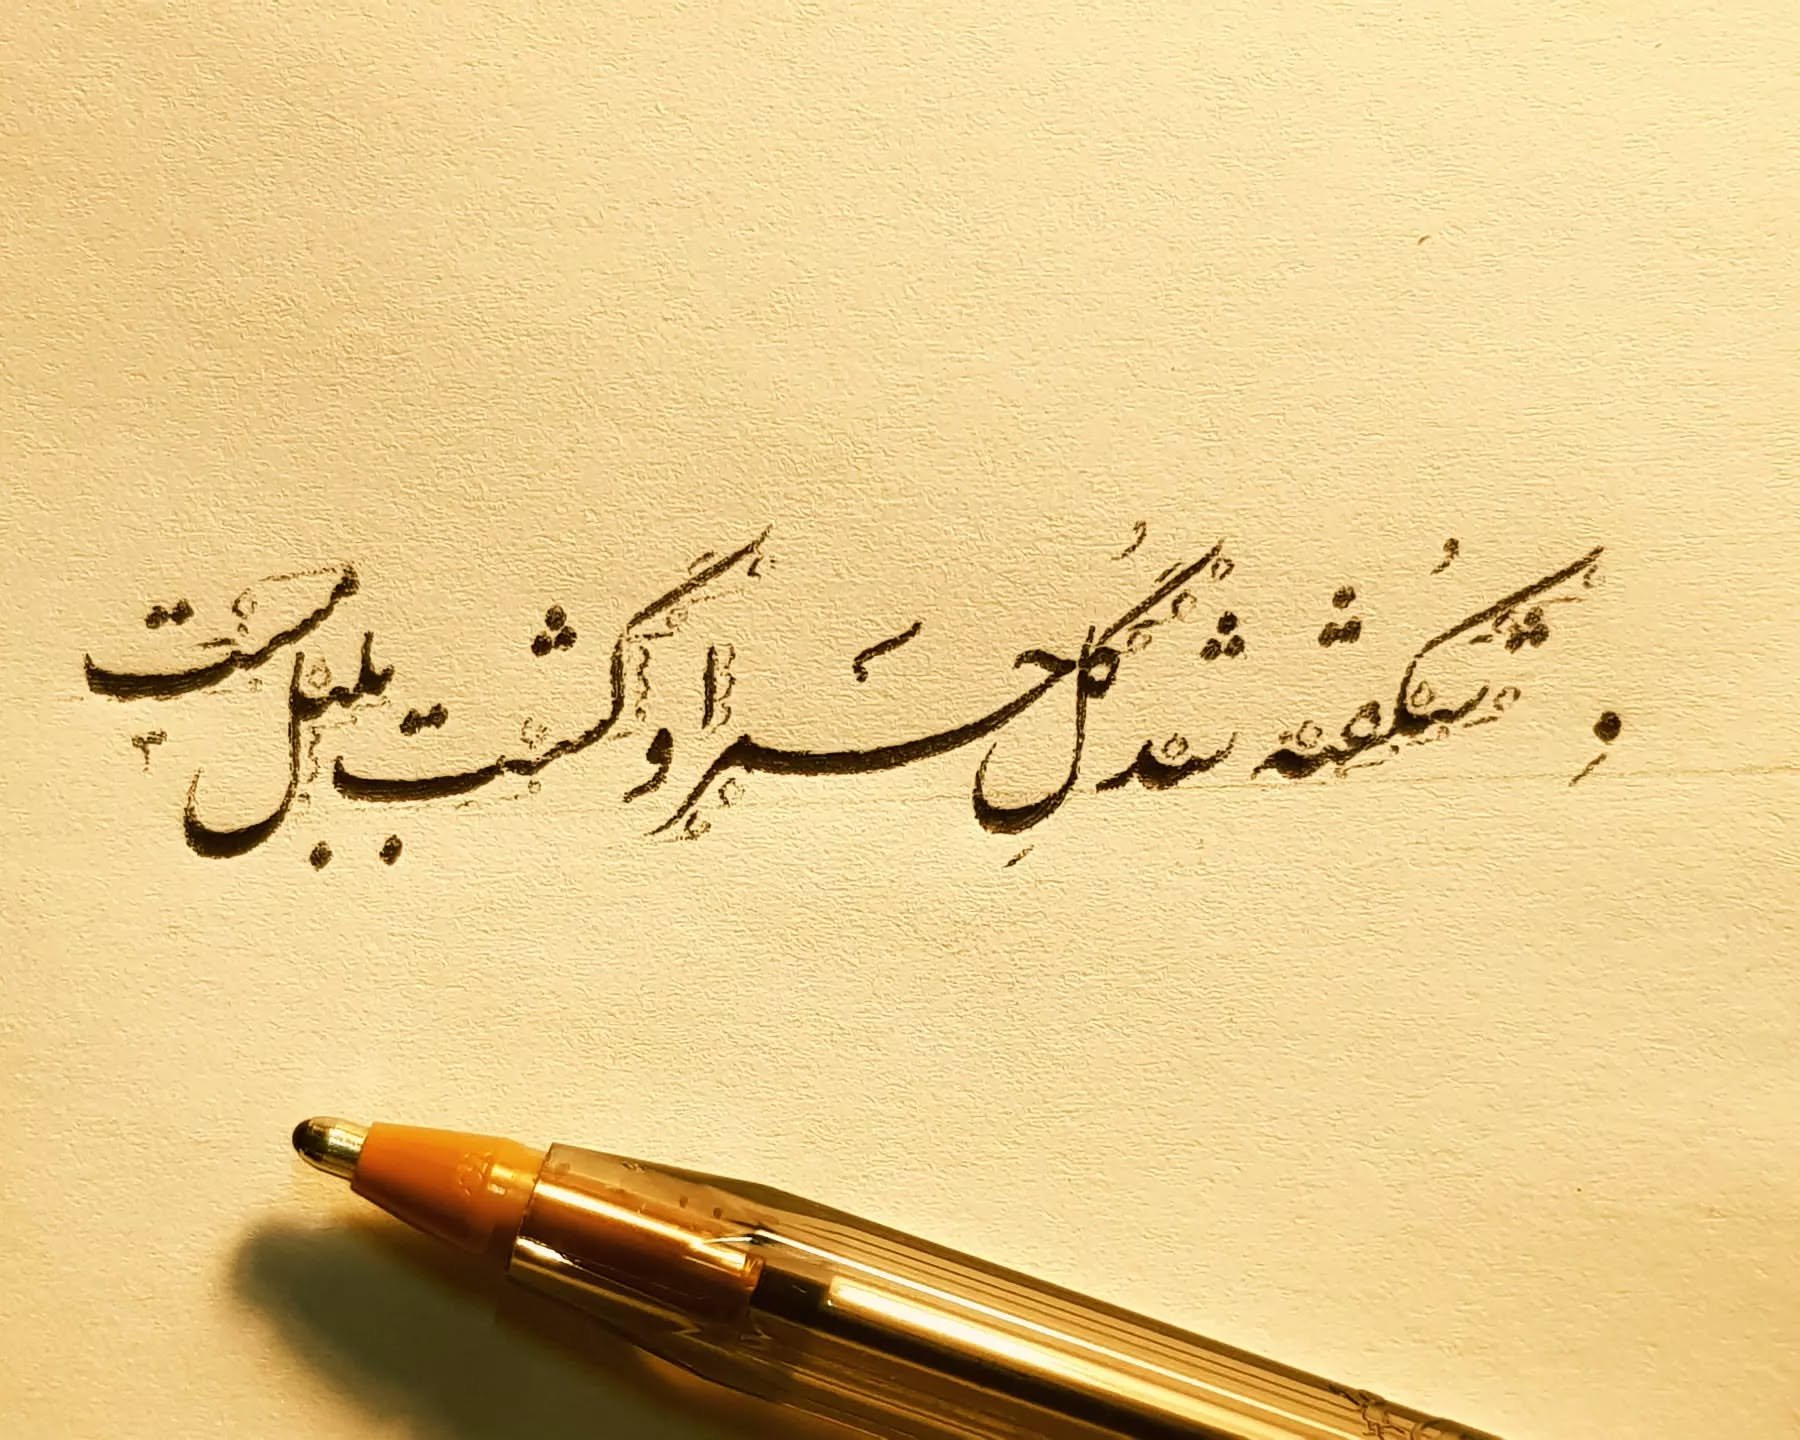 شُکفته شد گُلِ حَمرا و گشت بلبل مست